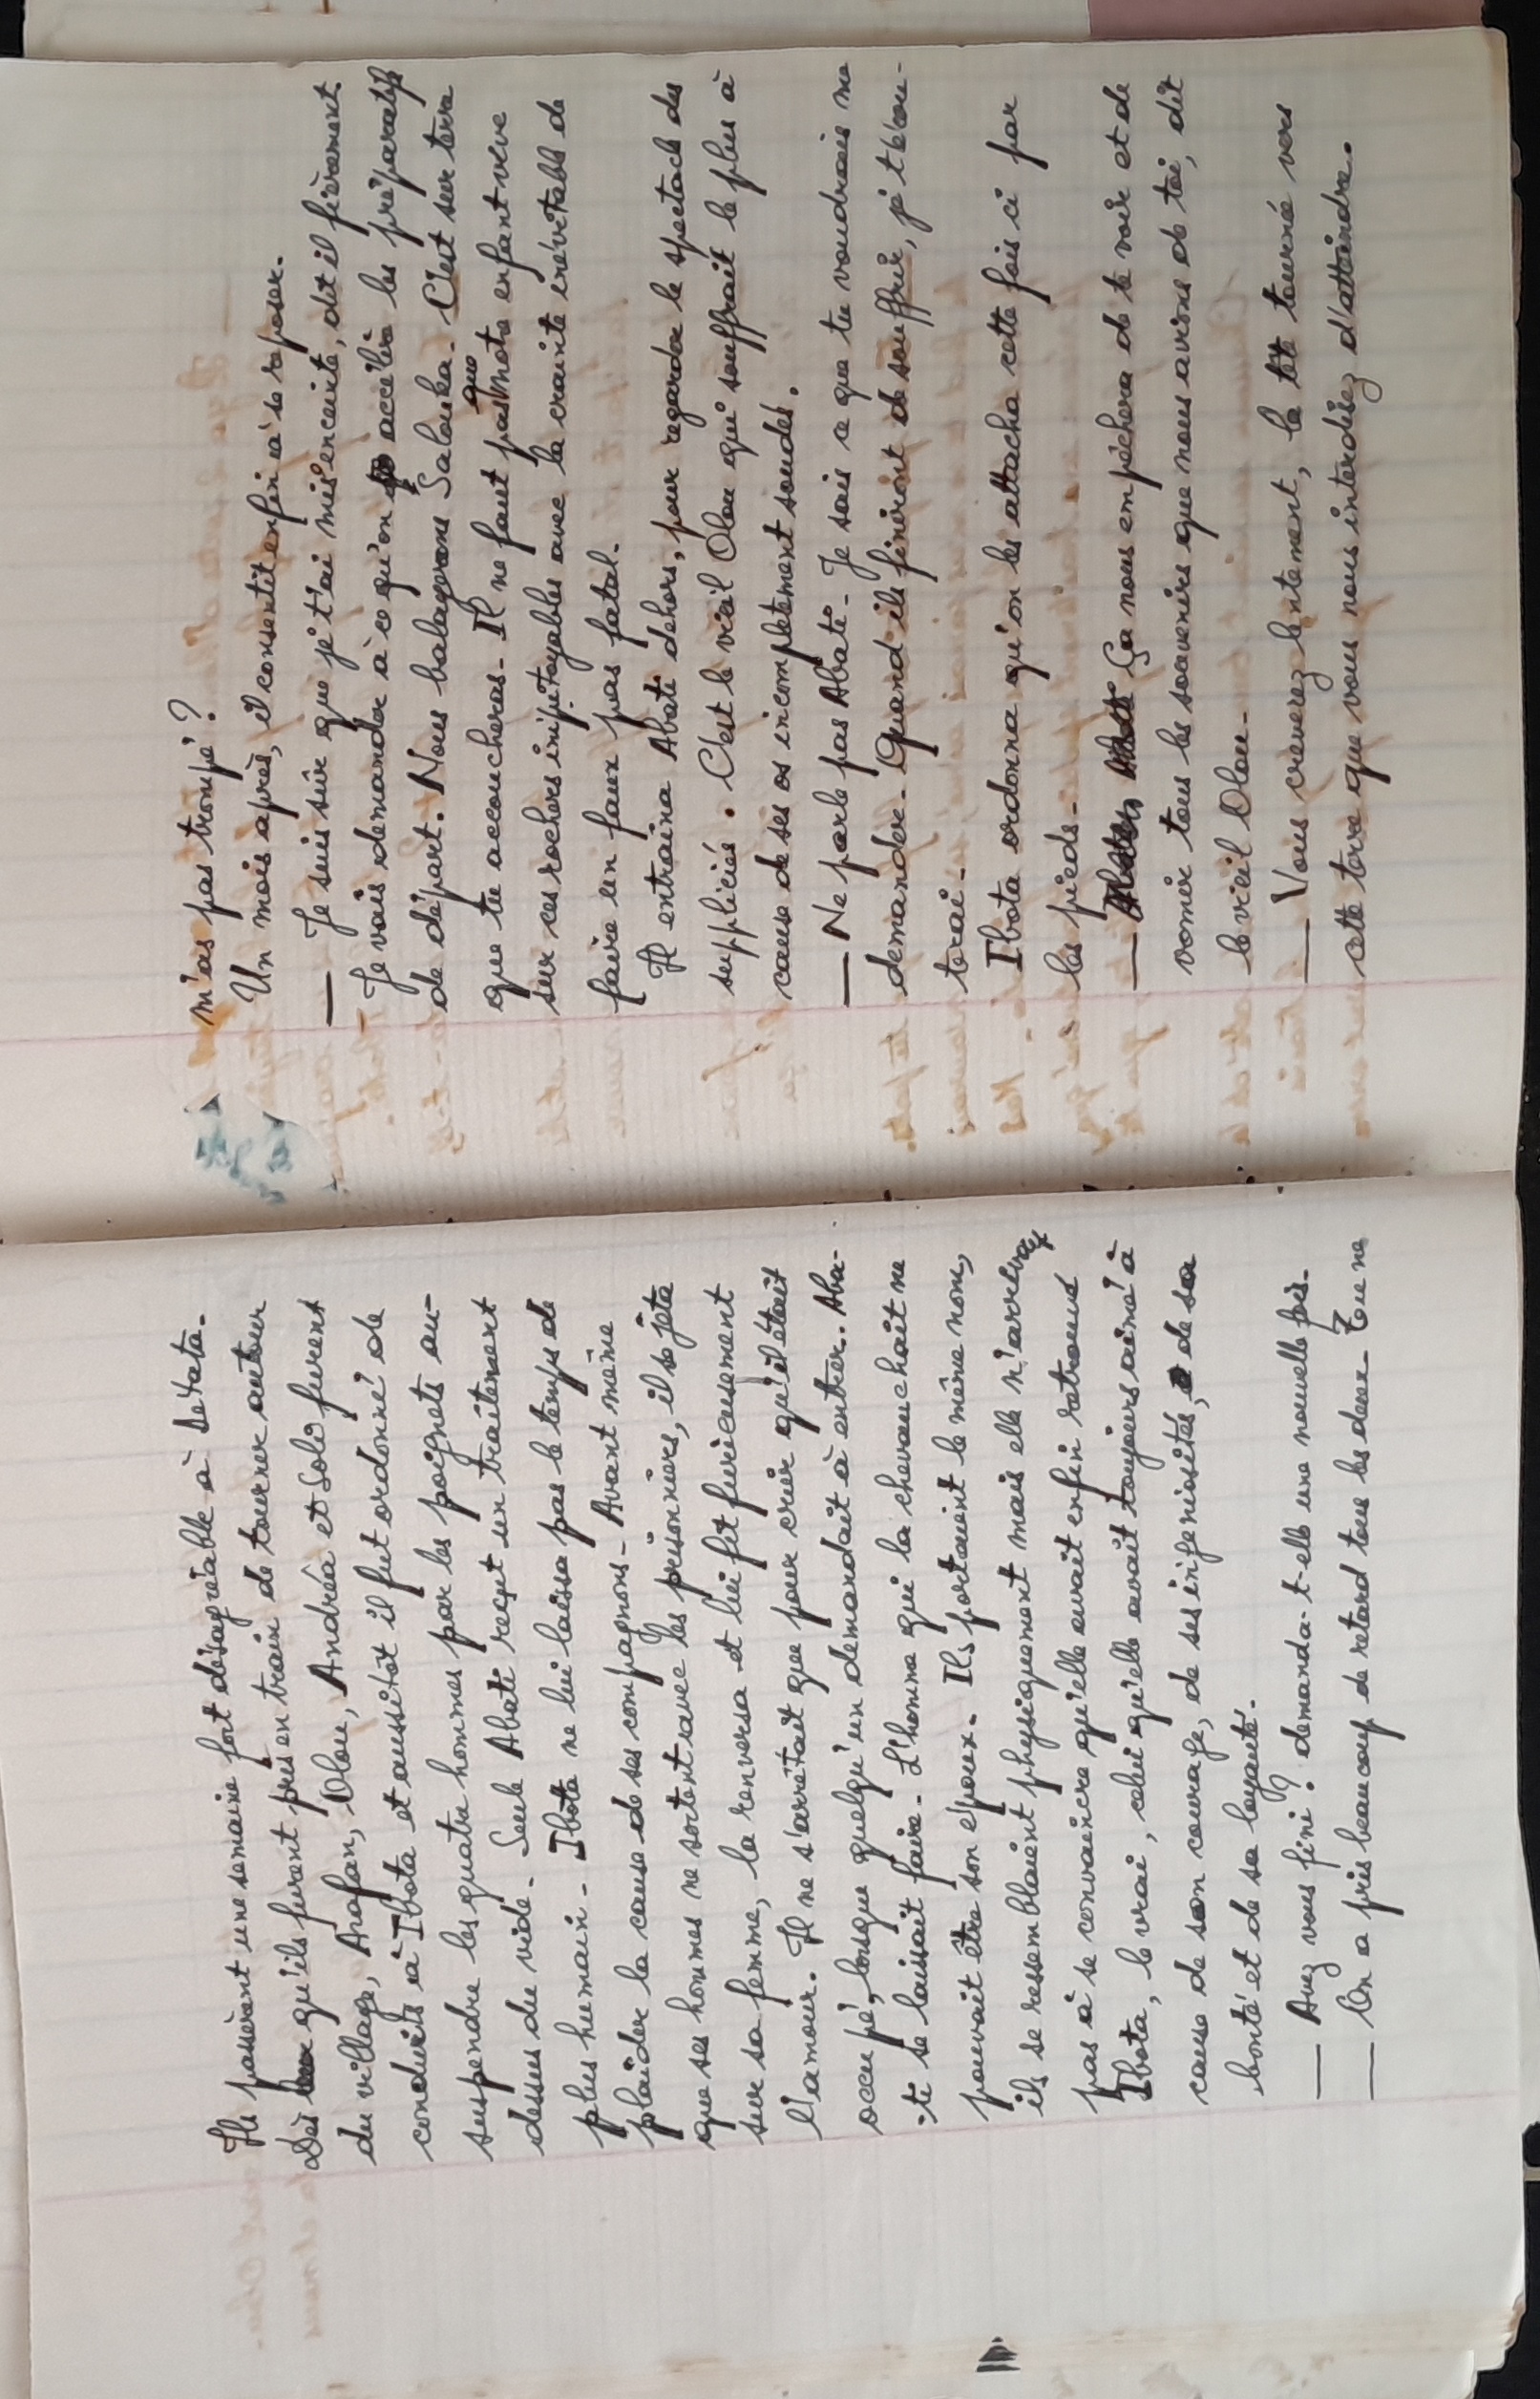 Ils passèrent une semaine fort désagréable à Détata.
Dès qu'ils furent pris en train de tourner autour
du village, Arafan, Olou, Andréa et Soli furent
conduits à Ibota et aussitôt il fut ordonné de
suspendre les quatre hommes par les poignets au-
dessus du vide. Seule Abati reçut un traitement
plus humain. Ibota ne lui laissa pas le temps de
plaider la cause de ses compagnons. Avant même
que ses hommes ne sortent avec les prisonniers, il se jeta
sur sa femme, la renversa et lui fit furieusement
l'amour. Il ne s'arrêtait que pour crier qu'il était
occupé, lorsque quelqu'un demandait à entrer. Aba-
ti se laissait faire. L'homme qui la chevauchait ne
pouvait être son époux. Ils portaient le même nom,
ils se ressemblaient physiquement mais elle n'arrivait
pas à se convaincre qu'elle avait enfin retrouvé
Ibota, le vrai, celui qu'elle avait toujours aimé à
cause de son courage, de ses ingéniosités, de sa
bonté et de sa loyauté.
— Avez vous fini ? demanda-t-elle une nouvelle fois.
— On a pris beaucoup de retard tous les deux. Tu ne
m'as pas trompé ?
Un mois après, il consentit enfin à se reposer.
— Je suis sûr que je t'ai mis enceinte, dit il fièrement
Je vais demander à ce qu'on accélère les préparatifs
de départ. Nous balagerons Salouka. C'est sur terre
que tu accoucheras. Il ne faut pas que notre enfant vive
sur ces rochers inpitoyables avec la crainte inévitable de
faire un faux pas fatal.
Il entraîna Abati dehors, pour regarder le spectacle des
suppliciés. C'est le vieil Olou qui souffrait le plus à
cause de ses os incomplètement soudés.
— Ne parle pas Abati. Je sais ce que tu voudrais me
demander. Quand ils finiront de souffrir, je t'écou-
terai.
Ibota ordonna qu'on les attacha cette fois ci par
les pieds.
— Ça nous empêchera de te voir et de
vomir tous les souvenirs que nous avions de toi, dit
le vieil Olou.
— Vous crèverez lentement, la tête tournée vers
cette terre que vous nous interdisez d'atteindre.